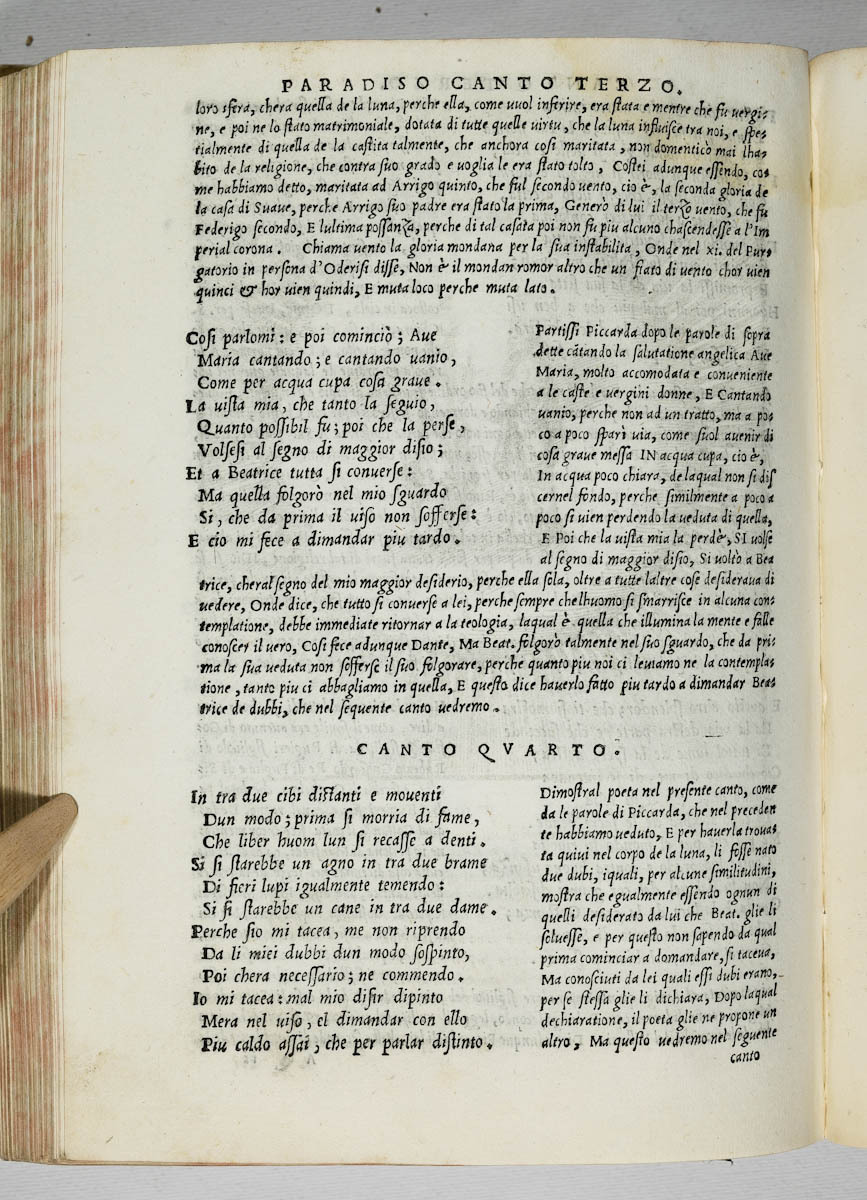 PARADISO CANTO TERZO.
loro sfera, chera quella de la luna, perche ella, come vuol inferire, era stata e mentre che fu uergi-
ne, e poi ne lo stato matrimoniale, dotata di tutte quelle uirtu, che la luna influisce tra noi, e spe-
tialmente di quella de la castita talmente, che anchora cosi maritata, non domenticò mai lha-
bito de la religione, che contra suo grado e uoglia le era stato tolto, Costei adunque essendo, co-
me habbiamo detto, maritata ad Arrigo quinto, che ful secondo uento, cio è, la seconda gloria de
la casa di Suaue, perche Arrigo suo padre era stato la prima, Generò di lui il terzo uento, che fu
Federigo secondo, E lultima possanza, perche di tal casata poi non fu piu alcuno chascendesse a l'Im
perial corona. Chiama uento la gloria mondana per la sua instabilita, Onde nel xi. del Pur-
gatorio in persona d'Oderisi disse, Non è il mondan romor altro che un fiato di uento chor uien
quinci & hor uien quindi, E muta loco perche muta lato.
Cosi parlomi: e poi cominciò; Aue
Maria cantando; e cantando uanio,
Come per acqua cupa cosa graue.
La uista mia, che tanto la seguio,
Quanto possibil fu; poi che la perse,
Volsesi al segno di maggior disio;
Et a Beatrice tutta si conuerse:
Ma quella folgorò nel mio sguardo
Si, che da prima il uiso non sofferse:
E cio mi fece a dimandar piu tardo.
Partissi Piccarda dopo le parole di sopra
dette cātando la salutatione angelica Aue
Maria, molto accomodata e conueniente
a le caste e uergini donne, E Cantando
uanio, perche non ad un tratto, ma a po-
co a poco sparì uia, come suol auenir di
cosa graue messa IN acqua cupa, cio è,
In acqua poco chiara, de laqual non si dis
cernel fondo, perche similmente a poco a
poco si uien perdendo la ueduta di quella,
E Poi che la uista mia la perdè, SI uolse
al segno di maggior disio, Si uoltò a Bea
trice, cheral segno del mio maggior desiderio, perche ella sola, oltre a tutte laltre cose desideraua di
uedere, Onde dice, che tutto si conuerse a lei, perche sempre chelhuomo si smarrisce in alcuna con-
templatione, debbe immediate ritornar a la teologia, laqual è quella che illumina la mente e falle
conoscer il uero, Cosi fece adunque Dante, Ma Beat. folgorò talmente nel suo sguardo, che da pri-
ma la sua ueduta non sofferse il suo folgorare, perche quanto piu noi ci leuiamo ne la contempla-
tione, tanto piu ci abbagliamo in quella, E questo dice hauerlo fatto piu tardo a dimandar Bea-
trice de dubbi, che nel sequente canto uedremo.
CANTO QVARTO.
In tra due cibi distanti e mouenti
Dun modo; prima si morria di fame,
Che liber huom lun si recasse a denti.
Si si starebbe un agno in tra due brame
Di fieri lupi igualmente temendo:
Si si starebbe un cane in tra due dame.
Perche sio mi tacea, me non riprendo
Da li miei dubbi dun modo sospinto,
Poi chera necessario; ne commendo.
Io mi tacea: mal mio disir dipinto
Mera nel uiso, el dimandar con ello
Piu caldo assai, che per parlar distinto.
Dimostral poeta nel presente canto, come
da le parole di Piccarda, che nel preceden
te habbiamo ueduto, E per hauerla troua-
ta quiui nel corpo de la luna, li fosse nato
due dubi, iquali, per alcune similitudini,
mostra che egualmente essendo ognun di
quelli desiderato da lui che Beat. glie li
soluesse, e per questo non sapendo da qual
prima cominciar a domandare, si taceua,
Ma conosciuti da lei quali essi dubi erano,
per se stessa glie li dichiara, Dopo laqual
dechiaratione, il poeta glie ne propone un
altro, Ma questo uedremo nel seguente
canto